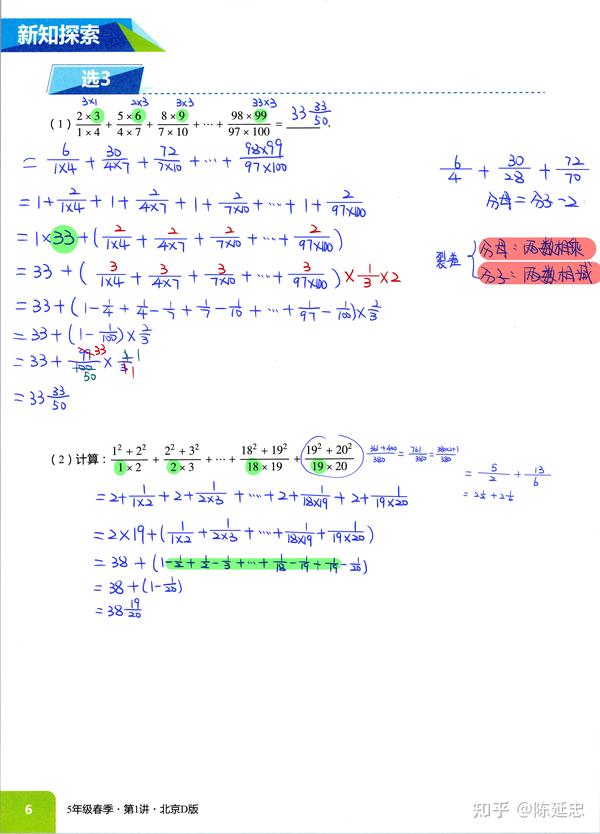 新知探索
选3
3×1 2×3 3×3 33×3
(1) 2×3/1×4 + 5×6/4×7 + 8×9/7×10 + ⋯ + 98×99/97×100 = 33 33/50.
= 6/1×4 + 30/4×7 + 72/7×10 + ⋯ + 98×99/97×100
6/4 + 30/28 + 72/70
分母=分子-2
= 1+ 2/1×4 + 1+ 2/4×7 + 1+ 2/7×10 + ⋯ + 1+ 2/97×100
= 1×33+( 2/1×4 + 2/4×7 + 2/7×10 + ⋯ + 2/97×100 )
裂差 { 分母:两数相乘
分子:两数相减
= 33 +( 3/1×4 + 3/4×7 + 3/7×10 + ⋯ + 3/97×100 )× 1/3 ×2
= 33+(1- 1/4 + 1/4 - 1/7 + 1/7 - 1/10 + ⋯ + 1/97 - 1/100 )× 2/3
= 33+(1- 1/100 )× 2/3
= 33+ 99/100 × 2/3
33 1
50 1
= 33 33/50
(2) 计算: 1²+2²/1×2 + 2²+3²/2×3 + ⋯ + 18²+19²/18×19 + 19²+20²/19×20
361+400/380 = 761/380 = 380×2+1/380
5/2 + 13/6
= 2 1/2 + 2 1/6
= 2+ 1/1×2 + 2+ 1/2×3 + ⋯ + 2+ 1/18×19 + 2+ 1/19×20
= 2×19+( 1/1×2 + 1/2×3 + ⋯ + 1/18×19 + 1/19×20 )
= 38 +(1- 1/2 + 1/2 - 1/3 + ⋯ + 1/18 - 1/19 + 1/19 - 1/20 )
= 38+(1- 1/20 )
= 38 19/20
6
5年级春季·第1讲·北京D版
知乎 @陈延忠